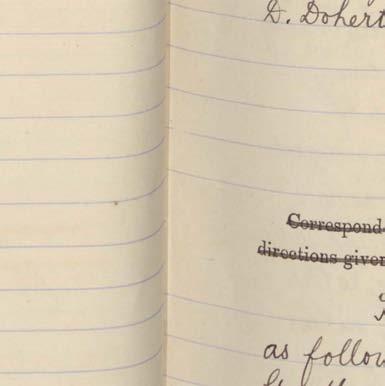 D. Dohert
Correspond
directions given
as follow